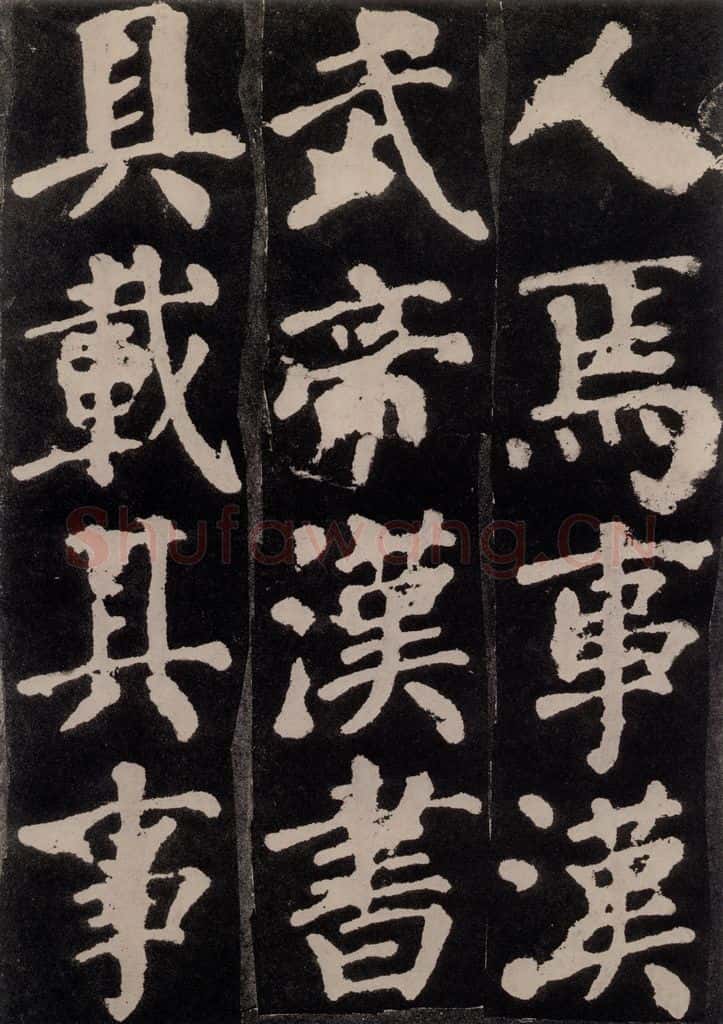 人焉事漢
武帝漢書
具載其事
Shufawang.CN